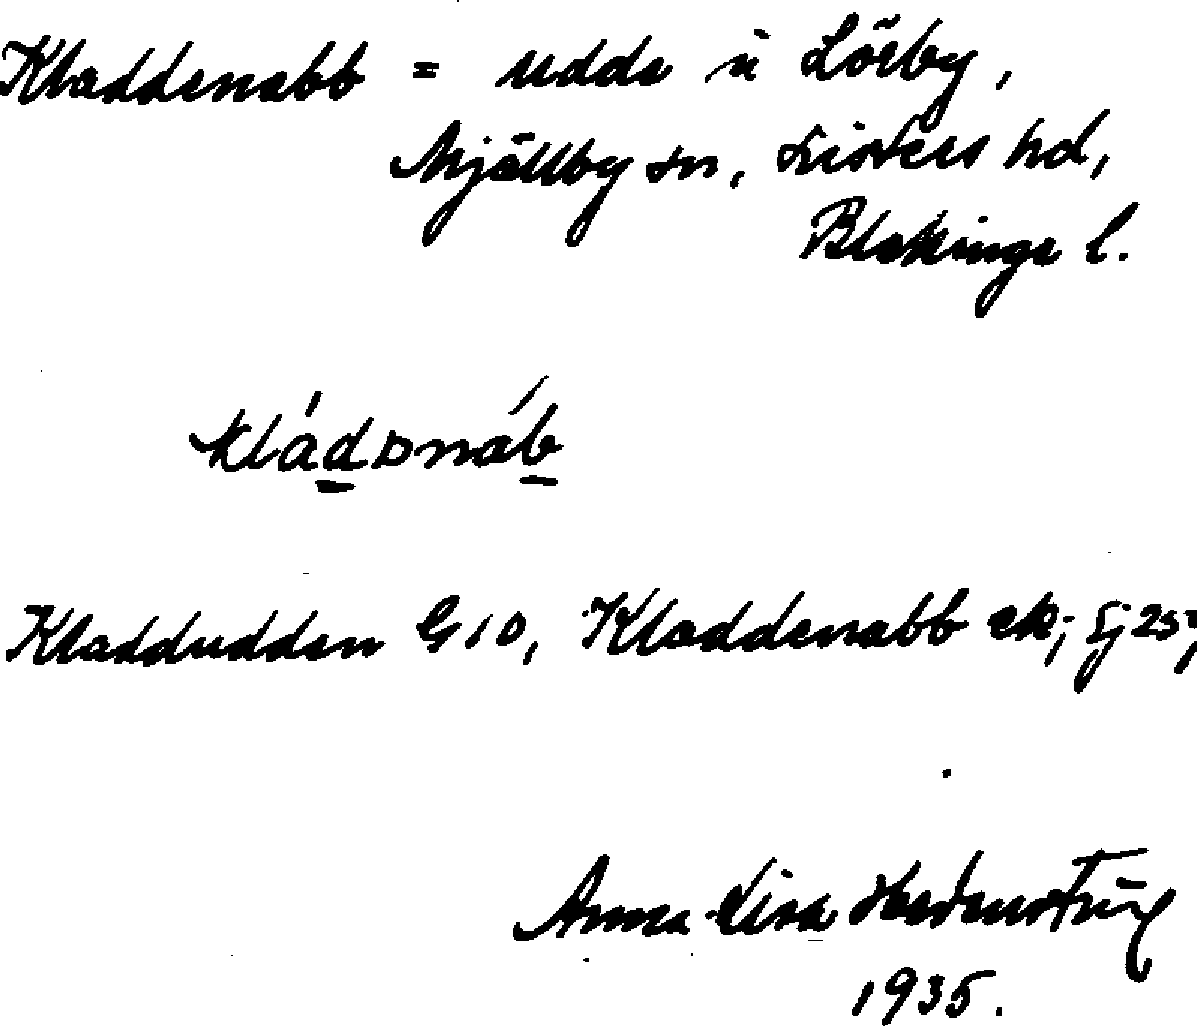 Kladdenabb = udde i Lörby,
Mjällby sn, Listers hd,
Blekinge l.
kládənáb
Kladdudden G 10, Kladdenabb ek; Sj 257
Anna-Lisa
1935.